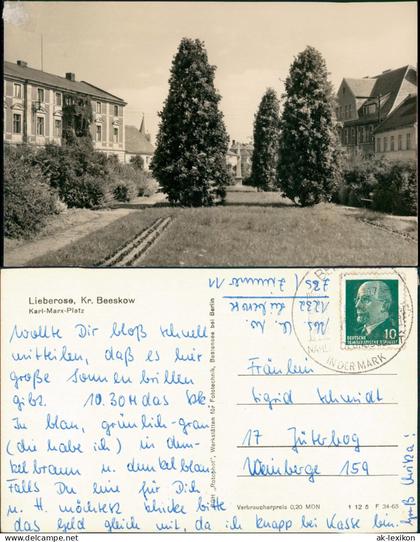 Lieberose, Kr. Beeskow
Karl-Marx-Platz
wollte Dir bloß schnell
mitteilen, daß es hier
große Sonnenbrillen
gibt. 10.30M das
In blau, grünlich-grau
(die habe ich) in dun-
kelbraun u. dunkelblau.
Falls Du eine für Dich
u. H. möchtest schicke bitte
das Geld gleich mit, da ich knapp bei Kasse bin.
VEB "Fotophot", Werkstätten für Fototechnik, Bestensee bei Berlin
Zimmer 11
1232
10
DEUTSCHE
DEMOKRATISCHE REPUBLIK
IN DER MARK
Fräulein
Sigrid Schmidt
17 Jüterbog
Weinberge 159
Gruß
Verbraucherpreis 0,20 MDN
1 12 5 F 34-65
© ak-lexikon